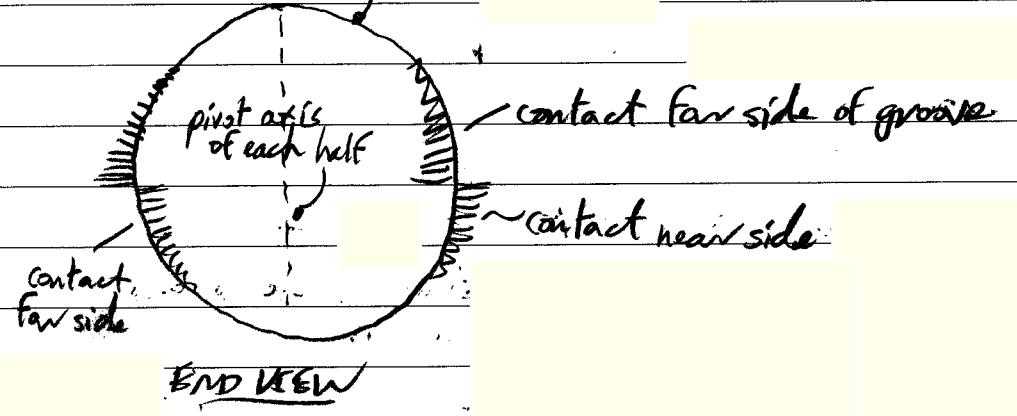 pivot axis
of each half
contact far side of groove
contact near side
contact
far side
END VIEW